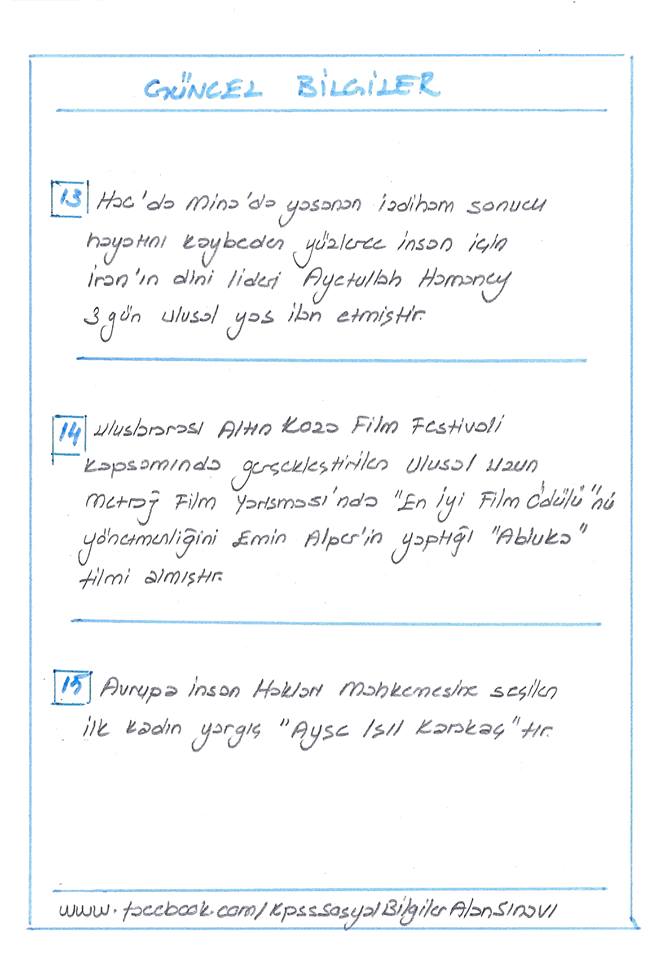 GÜNCEL BİLGİLER
13 Hac'da Mina'da yaşanan izdiham sonucu
hayatını kaybeden yüzlerce insan için
İran'ın dini lideri Ayetullah Hamaney
3 gün ulusal yas ilan etmiştir.
14 Uluslararası Altın Koza Film Festivali
kapsamında gerçekleştirilen Ulusal Uzun
Metraj Film Yarışması'nda "En İyi Film Ödülü"nü
yönetmenliğini Emin Alper'in yaptığı "Abluka"
filmi almıştır.
15 Avrupa İnsan Hakları Mahkemesine seçilen
ilk kadın yargıç "Ayşe Işıl Karakaş"tır.
www.facebook.com/KpssSosyalBilgilerAlanSınavı